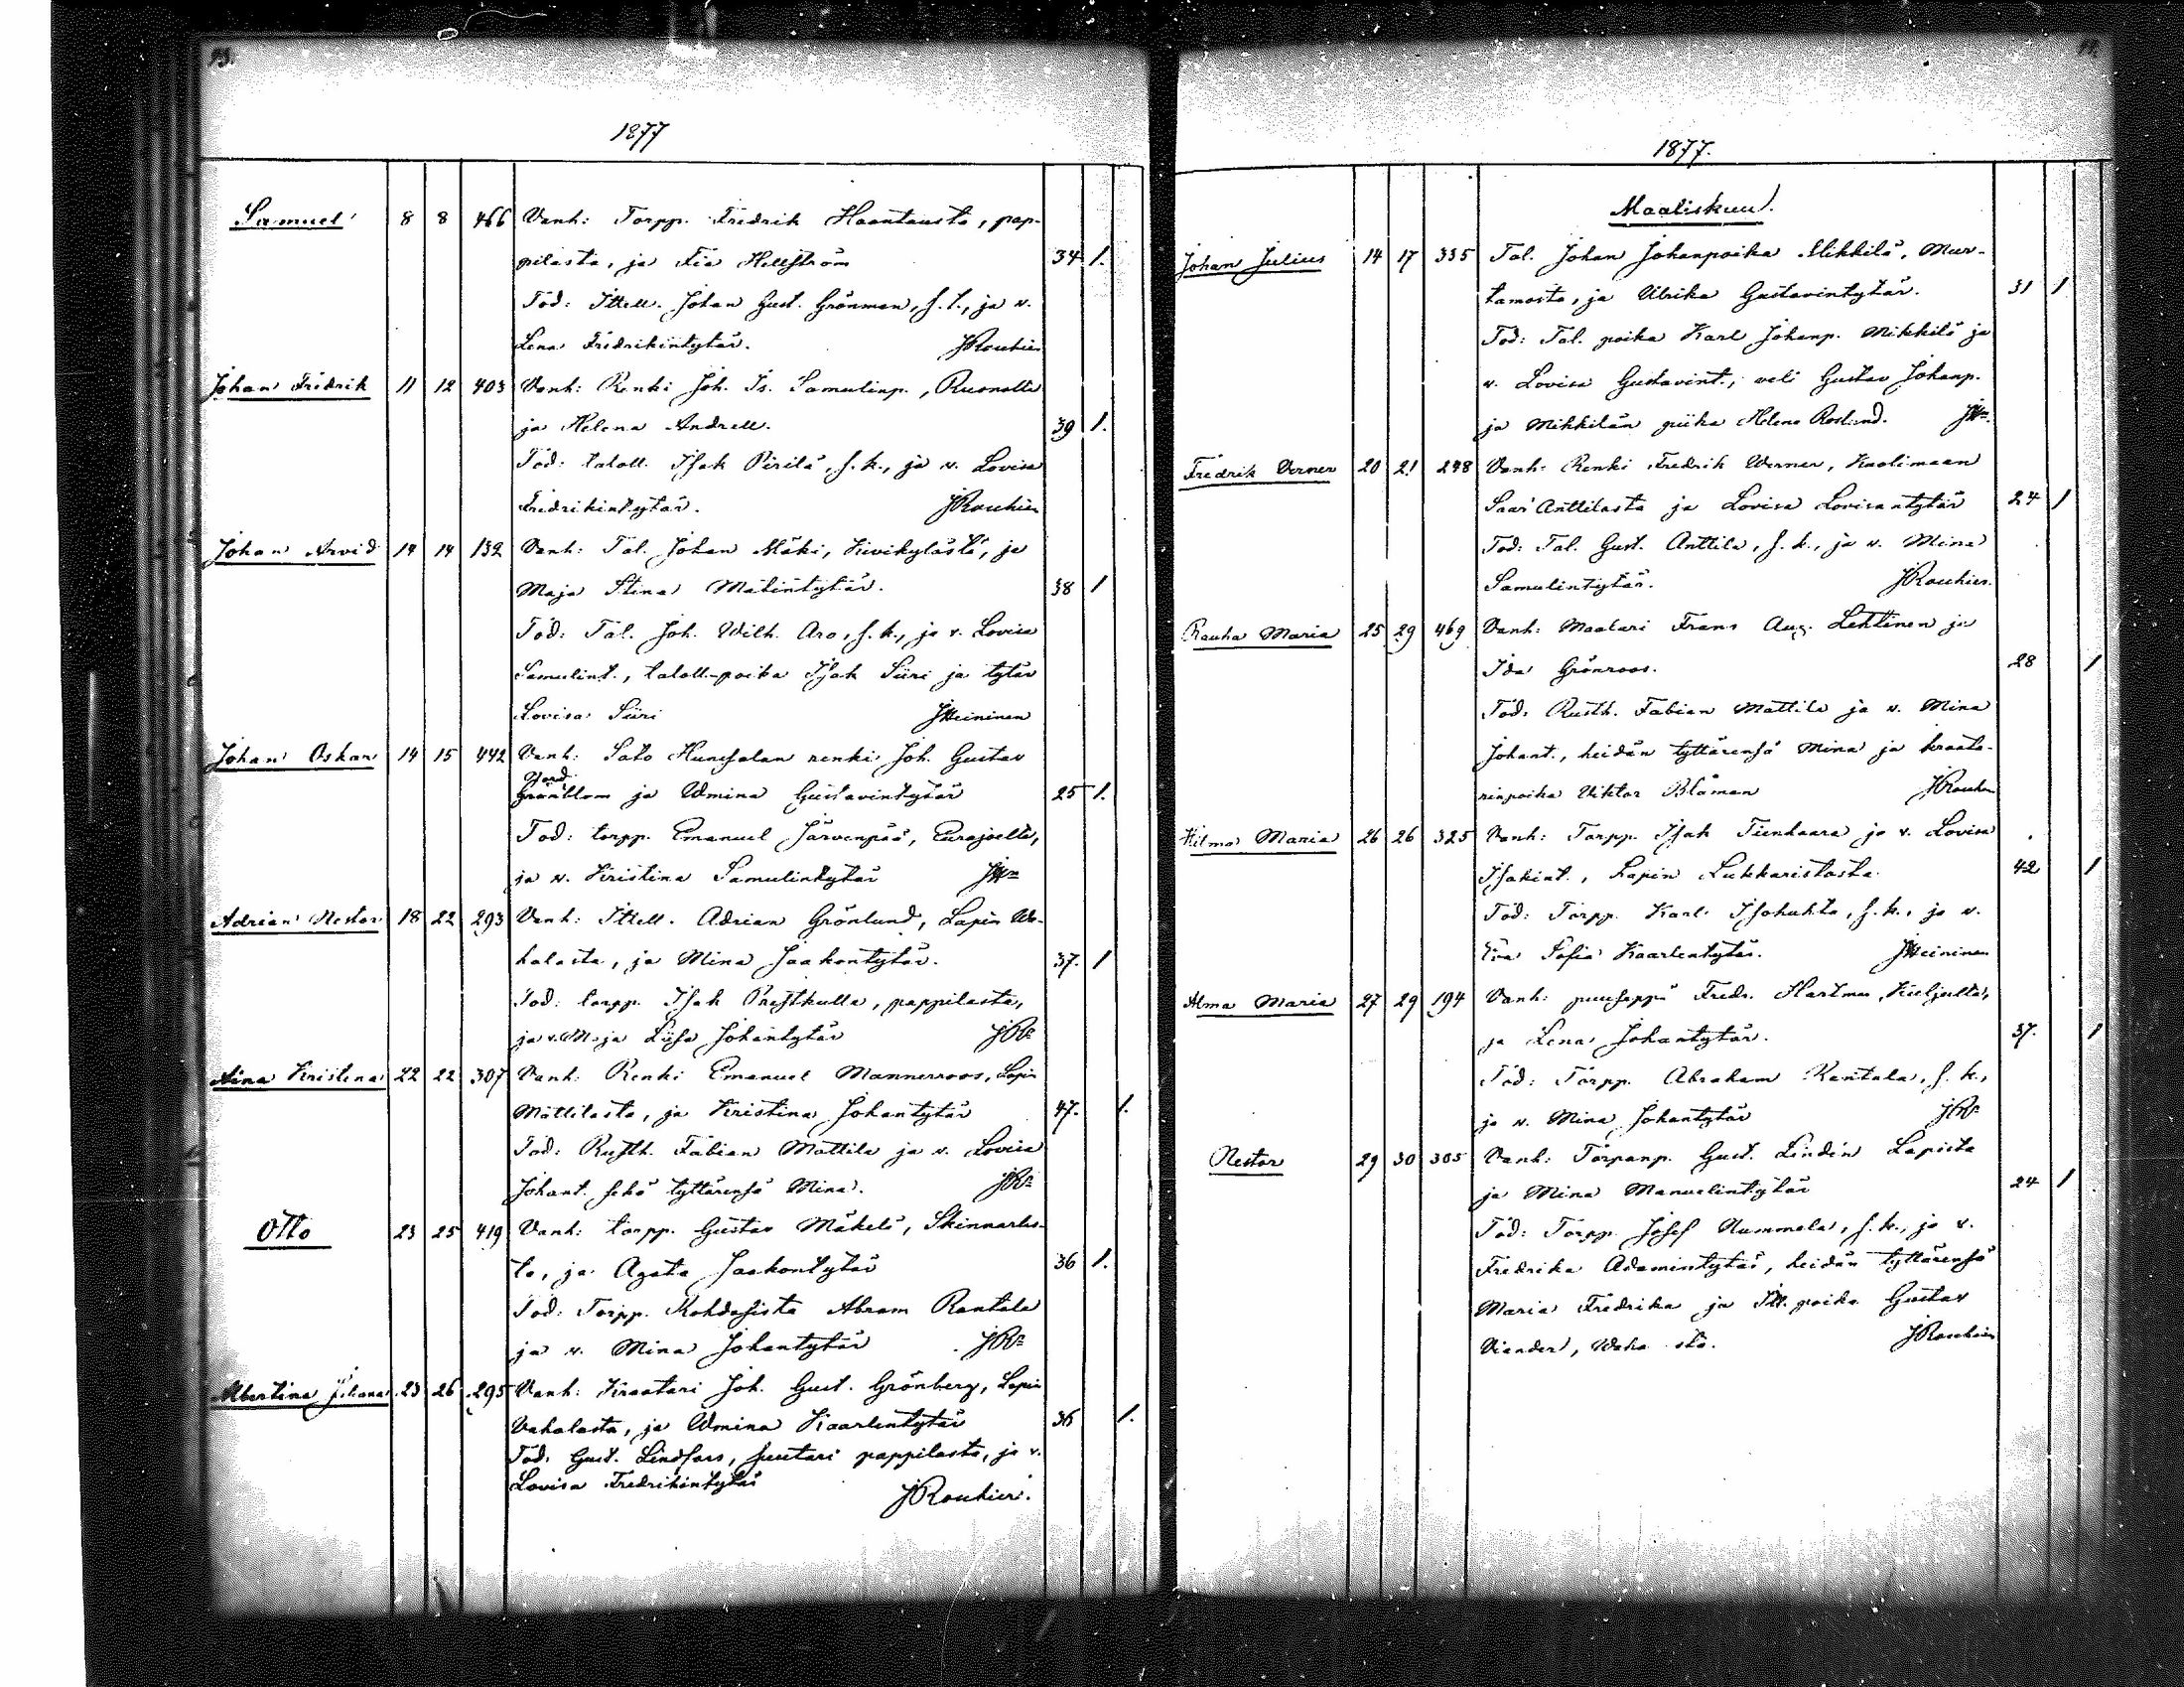 93.
1877
Samuel 8 8 466 Vanh: Torpp. Fredrik Haantausta, pap-
pilasta, ja Fia Hellström 34 1.
Tod: Ittell. Johan Gust. Grönman, s. t., ja v.
Lena Fredrikintytär. JRouhier
Johan Fridrik 11 12 403 Vanh: Renki Joh. Is. Samulinp., Ruonalta
ja Helena Andrell. 39 1.
Tod: taloll. Isak Pirilä, s. k., ja v. Lovisa
Fredrikintytär. JRouhier
Johan Arvid 14 14 132 Vanh: Tal. Johan Mäki, Kivikylästä, ja
Maja Stina Matintytär. 38 1
Tod: Tal. Joh. Wilh. Aro, s. k., ja v. Lovisa
Samulint., taloll.-poika Isak Siiri ja tytär
Lovisa Siiri JHeininen
Johan Oskar 14 15 442 Vanh: Sato Hunsalan renki Joh. Gustav
Grönblom ja Wmina Gustavintytär 25 1.
Tod: torpp. Emanuel Järvenpää, Eurajoelta,
ja v. Kristina Samulintytär JHn
Adrian Nestor 18 22 293 Vanh: Ittell. Adrian Grönlund, Lapin Wa-
halasta, ja Mina Jaakontytär. 37. 1
Tod: torpp. Isak Prestkulla, pappilasta,
ja v. Maja Liisa Johantytär JRr
Aina Kristina 22 22 307 Vanh: Renki Emanuel Mannerroos, Lapin
Mattilasta, ja Kristina Johantytär 47. 1.
Tod: Rusth. Fabian Mattila ja v. Lovisa
Johant. sekä tyttärensä Mina. JRr
Otto 23 25 419 Vanh: torpp. Gustav Mäkelä, Skinnarlis-
ta, ja Agata Jaakontytär 36 1.
Tod: Torpp. Kohdesista Abram Rantala
ja v. Mina Johantytär JRr
Albertina Juliana 23 26 295 Vanh: Kraatari Joh. Gust. Grönberg, Lapin
Vahalasta, ja Wmina Kaarlentytär 36 1.
Tod: Gust. Lindfors, suutari pappilasta, ja v.
Lovisa Fredrikintytär JRouhier.
1877.
Maaliskuu.
Johan Julius 14 17 335 Tal. Johan Johanpoika Mikkilä, Mur-
tamosta, ja Ulrika Gustavintytär. 31 1
Tod: Tal. poika Karl Johanp. Mikkilä ja
v. Lovisa Gustavint., veli Gustav Johanp.
ja Mikkilän piika Helena Roslund. JHn
Fredrik Verner 20 21 248 Vanh: Renki Fredrik Werner, Kaolimaan
Saari Anttilasta ja Lovisa Lovisantytär 24 1
Tod: Tal. Gust. Anttila, s. k., ja v. Mina
Samulintytär. JRouhier.
Rauha Maria 25 29 469 Vanh: Maalari Frans Aug. Lehtinen ja
Ida Grönroos. 28 1
Tod: Rusth. Fabian Mattila ja v. Mina
Johant., heidän tyttärensä Mina ja kraata-
rinpoika Viktor Blåman JRouhier
Hilma Maria 26 26 325 Vanh: Torpp. Isak Tienhaara ja v. Lovisa
Isakint., Lapin Lukkaristasta. 42 1
Tod: Torpp. Karl Isohuhta, s. k., ja v.
Eva Sofia Kaarlentytär. JHeininen
Alma Maria 27 29 194 Vanh: puuseppä Fredr. Hartman, Kuljulta,
ja Lena Johantytär. 37. 1
Tod: Torpp. Abraham Rantala, s. k.,
ja v. Mina Johantytär JRr
Nestor 29 30 305 Vanh: Torpanp. Gust. Lindén Lapista
ja Mina Manuelintytär 24 1
Tod: Torpp. Josef Nummela, s. k., ja v.
Fredrika Adamintytär, heidän tyttärensä
Maria Fredrika ja Itt. poika Gustav
Viander, Waha sta. JRouhier